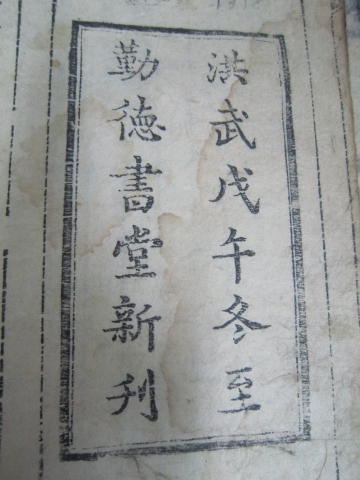 洪武戊午冬至
勤德書堂新刊